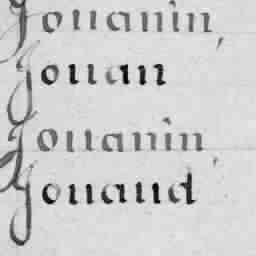 Jouanin,
Jouan
Jouanin,
Jouaud